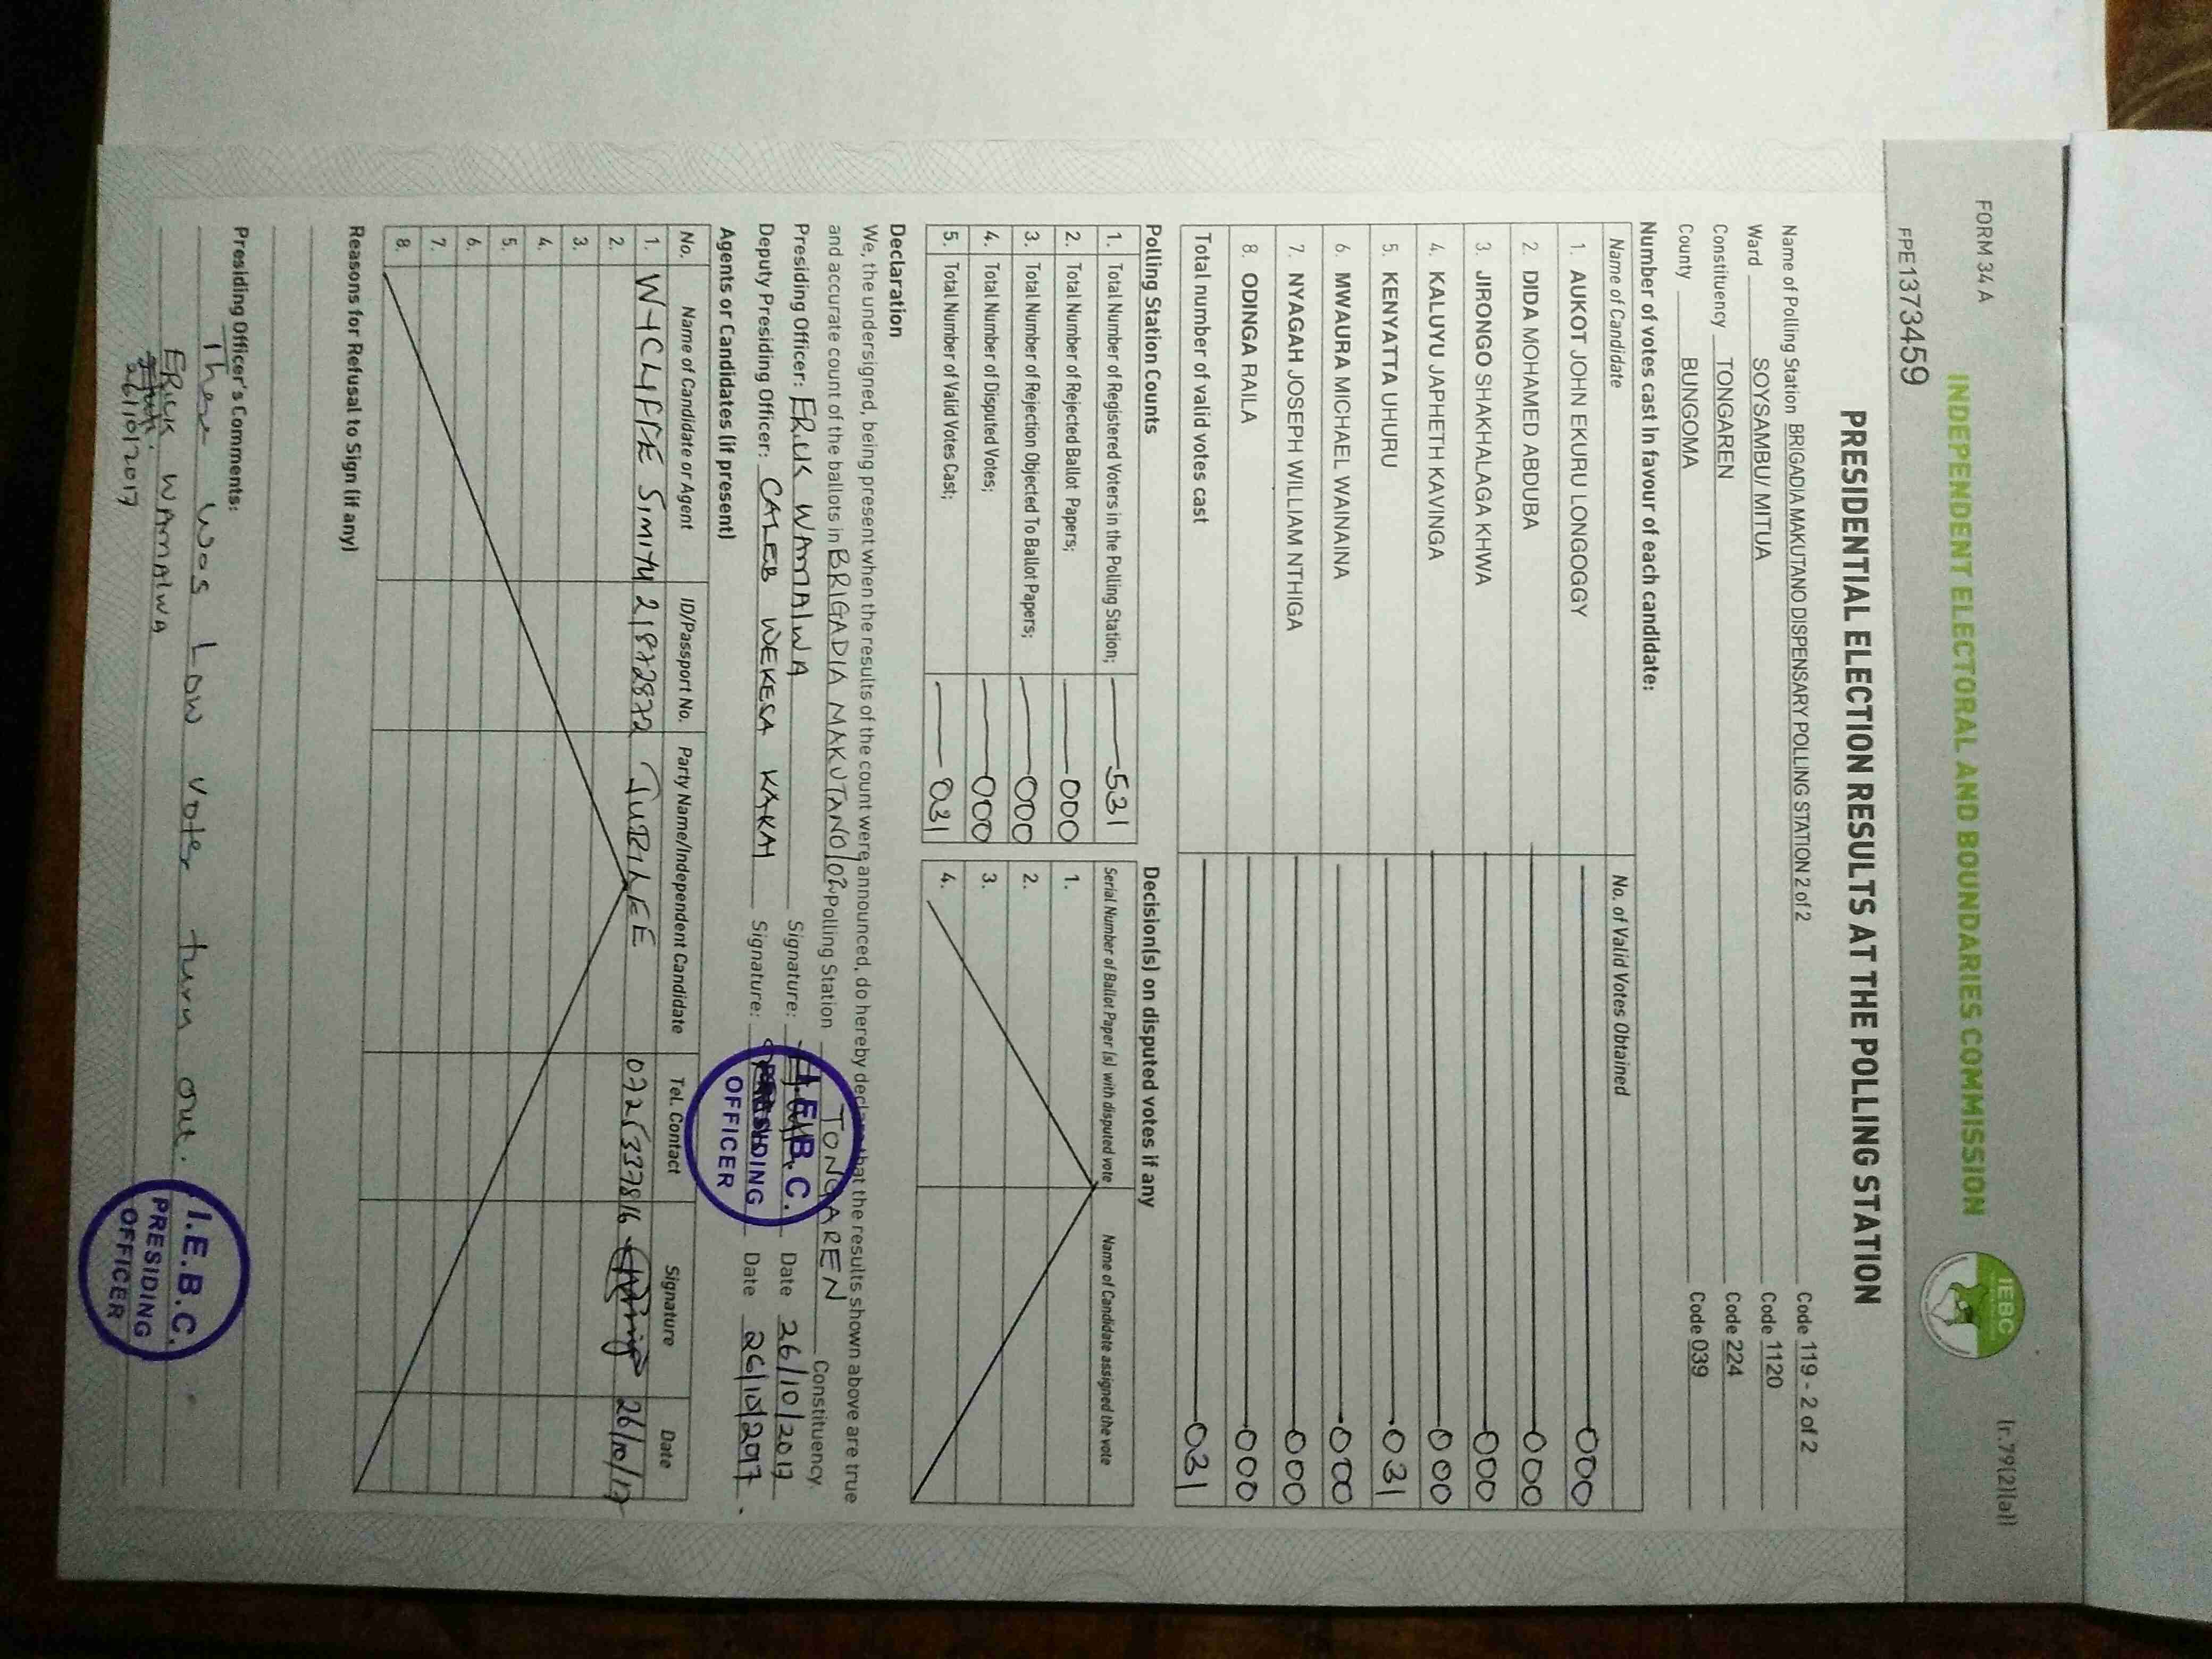 FORM 34 A
(r.79(2)(a))
INDEPENDENT ELECTORAL AND BOUNDARIES COMMISSION
IEBC
FPE1373459
PRESIDENTIAL ELECTION RESULTS AT THE POLLING STATION
Name of Polling Station BRIGADIA MAKUTANO DISPENSARY POLLING STATION 2 of 2 Code 119 - 2 of 2
Ward SOYSAMBU/ MITUA Code 1120
Constituency TONGAREN Code 224
County BUNGOMA Code 039
Number of votes cast in favour of each candidate:
Name of Candidate No. of Valid Votes Obtained
1. AUKOT JOHN EKURU LONGOGGY 000
2. DIDA MOHAMED ABDUBA 000
3. JIRONGO SHAKHALAGA KHWA 000
4. KALUYU JAPHETH KAVINGA 000
5. KENYATTA UHURU 031
6. MWAURA MICHAEL WAINAINA 000
7. NYAGAH JOSEPH WILLIAM NTHIGA 000
8. ODINGA RAILA 000
Total number of valid votes cast 031
Polling Station Counts Decision(s) on disputed votes if any
1. Total Number of Registered Voters in the Polling Station; 531 Serial Number of Ballot Paper (s) with disputed vote Name of Candidate assigned the vote
2. Total Number of Rejected Ballot Papers; 000 1.
3. Total Number of Rejection Objected To Ballot Papers; 000 2.
4. Total Number of Disputed Votes; 000 3.
5. Total Number of Valid Votes Cast; 031 4.
Declaration
We, the undersigned, being present when the results of the count were announced, do hereby declare that the results shown above are true
and accurate count of the ballots in BRIGADIA MAKUTANO/02 Polling Station TONGAREN Constituency.
Presiding Officer: ERICK WAMALWA Signature: Date 26/10/2017
Deputy Presiding Officer: CALEB WEKESA KAKAI Signature: Date 26/10/2017.
I.E.B.C.
PRESIDING
OFFICER
Agents or Candidates (if present)
No. Name of Candidate or Agent ID/Passport No. Party Name/Independent Candidate Tel. Contact Signature Date
1. WYCLIFFE SIMIYU 21872872 JUBILEE 0725337816 26/10/17
2.
3.
4.
5.
6.
7.
8.
Reasons for Refusal to Sign (if any)
Presiding Officer's Comments:
There was Low voter turn out.
ERICK WAMALWA
26/10/2017
I.E.B.C.
PRESIDING
OFFICER